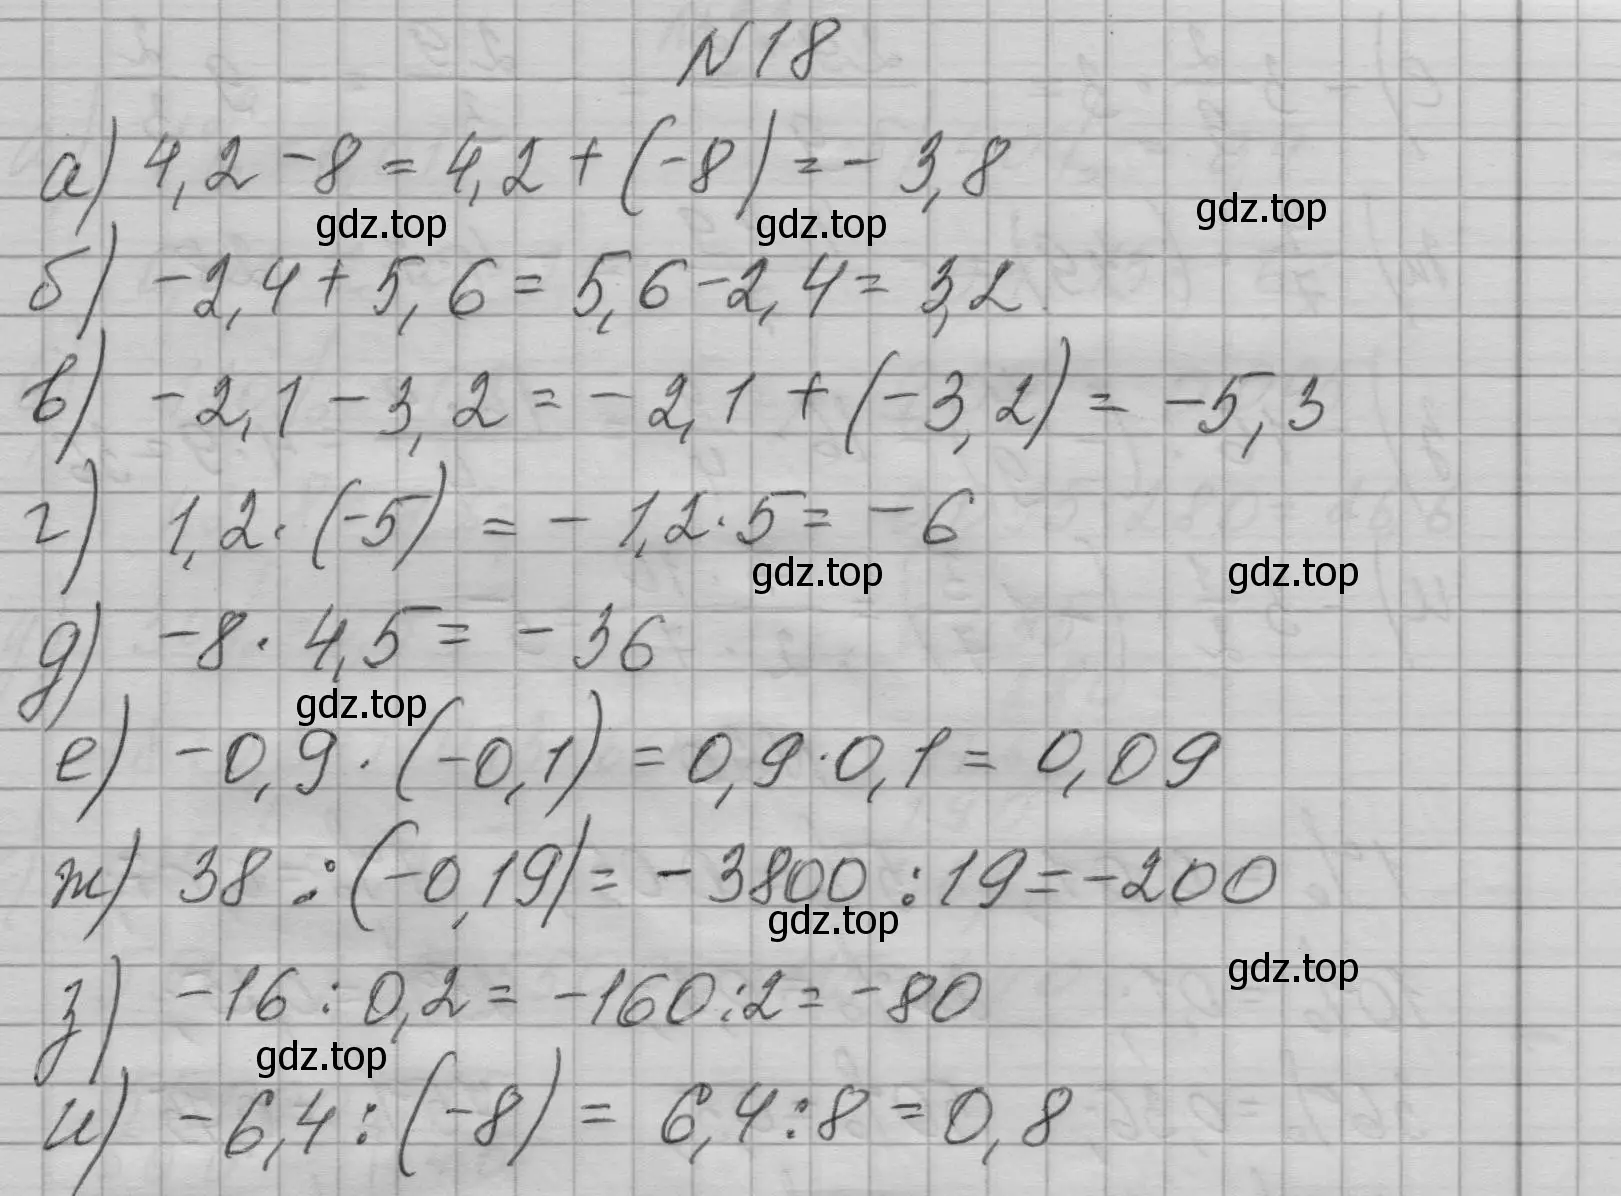 N18
а) 4,2 - 8 = 4,2 + (-8) = - 3,8
gdz.top gdz.top gdz.top
б) -2,4 + 5,6 = 5,6 - 2,4 = 3,2
в) -2,1 - 3,2 = -2,1 + (-3,2) = -5,3
г) 1,2 · (-5) = - 1,2 · 5 = -6
gdz.top gdz.top
д) -8 · 4,5 = - 36
gdz.top
е) -0,9 · (-0,1) = 0,9 · 0,1 = 0,09
ж) 38 : (-0,19) = -3800 : 19 = -200
gdz.top gdz.top
з) -16 : 0,2 = -160 : 2 = -80
gdz.top
и) -6,4 : (-8) = 6,4 : 8 = 0,8